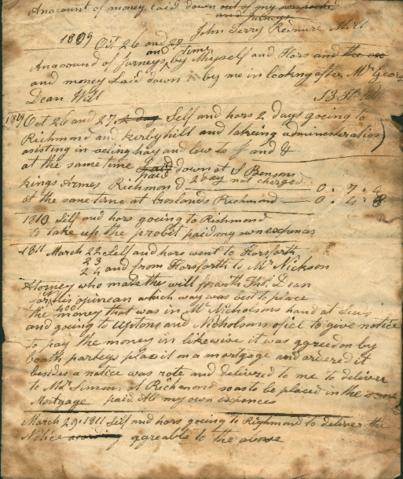 An acount of money laid down out of my
and jurneys
1809 Oct 26 and 28 John Terry
and time
An acount of Jurneys by Myself and Hors and
and money laid down by me in looking after Mr Geor
Dean Will
1809 Oct 26 and 27 2 day Self and hors 2 days going to
Richmond and Kerbyhill and takeing administration
asisting in seling hay and cow to J and
at the same time laid down at J Bensons
paid
Kings Armes Richmond 2 day not charged 0 . 7 . 6
at the same time at Richmond 0 . 4 . 8
1810 Self and hors going to Richmond
to take up the probet paid my own expences
1811 March 22 Self and hors went to Horsforth
23
24 and from Horsforth to Mr Nichson
Atorney who made the will for Dean
for his opinean which way was best to place
the money that was in Mr Nicholsons hand at
and going to and Nicholsons ofice to give notice
to pay the money in likewise it was agreed on by
both parteys place it on a mortgage and
besides a notice was rote and delivered to me to deliver
to Mr Simson at Richmond soas to be placed in the
Mortgage paid All my own expences
March 29 1811 Self and hors going to Righmond to deliver the
Notice agreable to the above